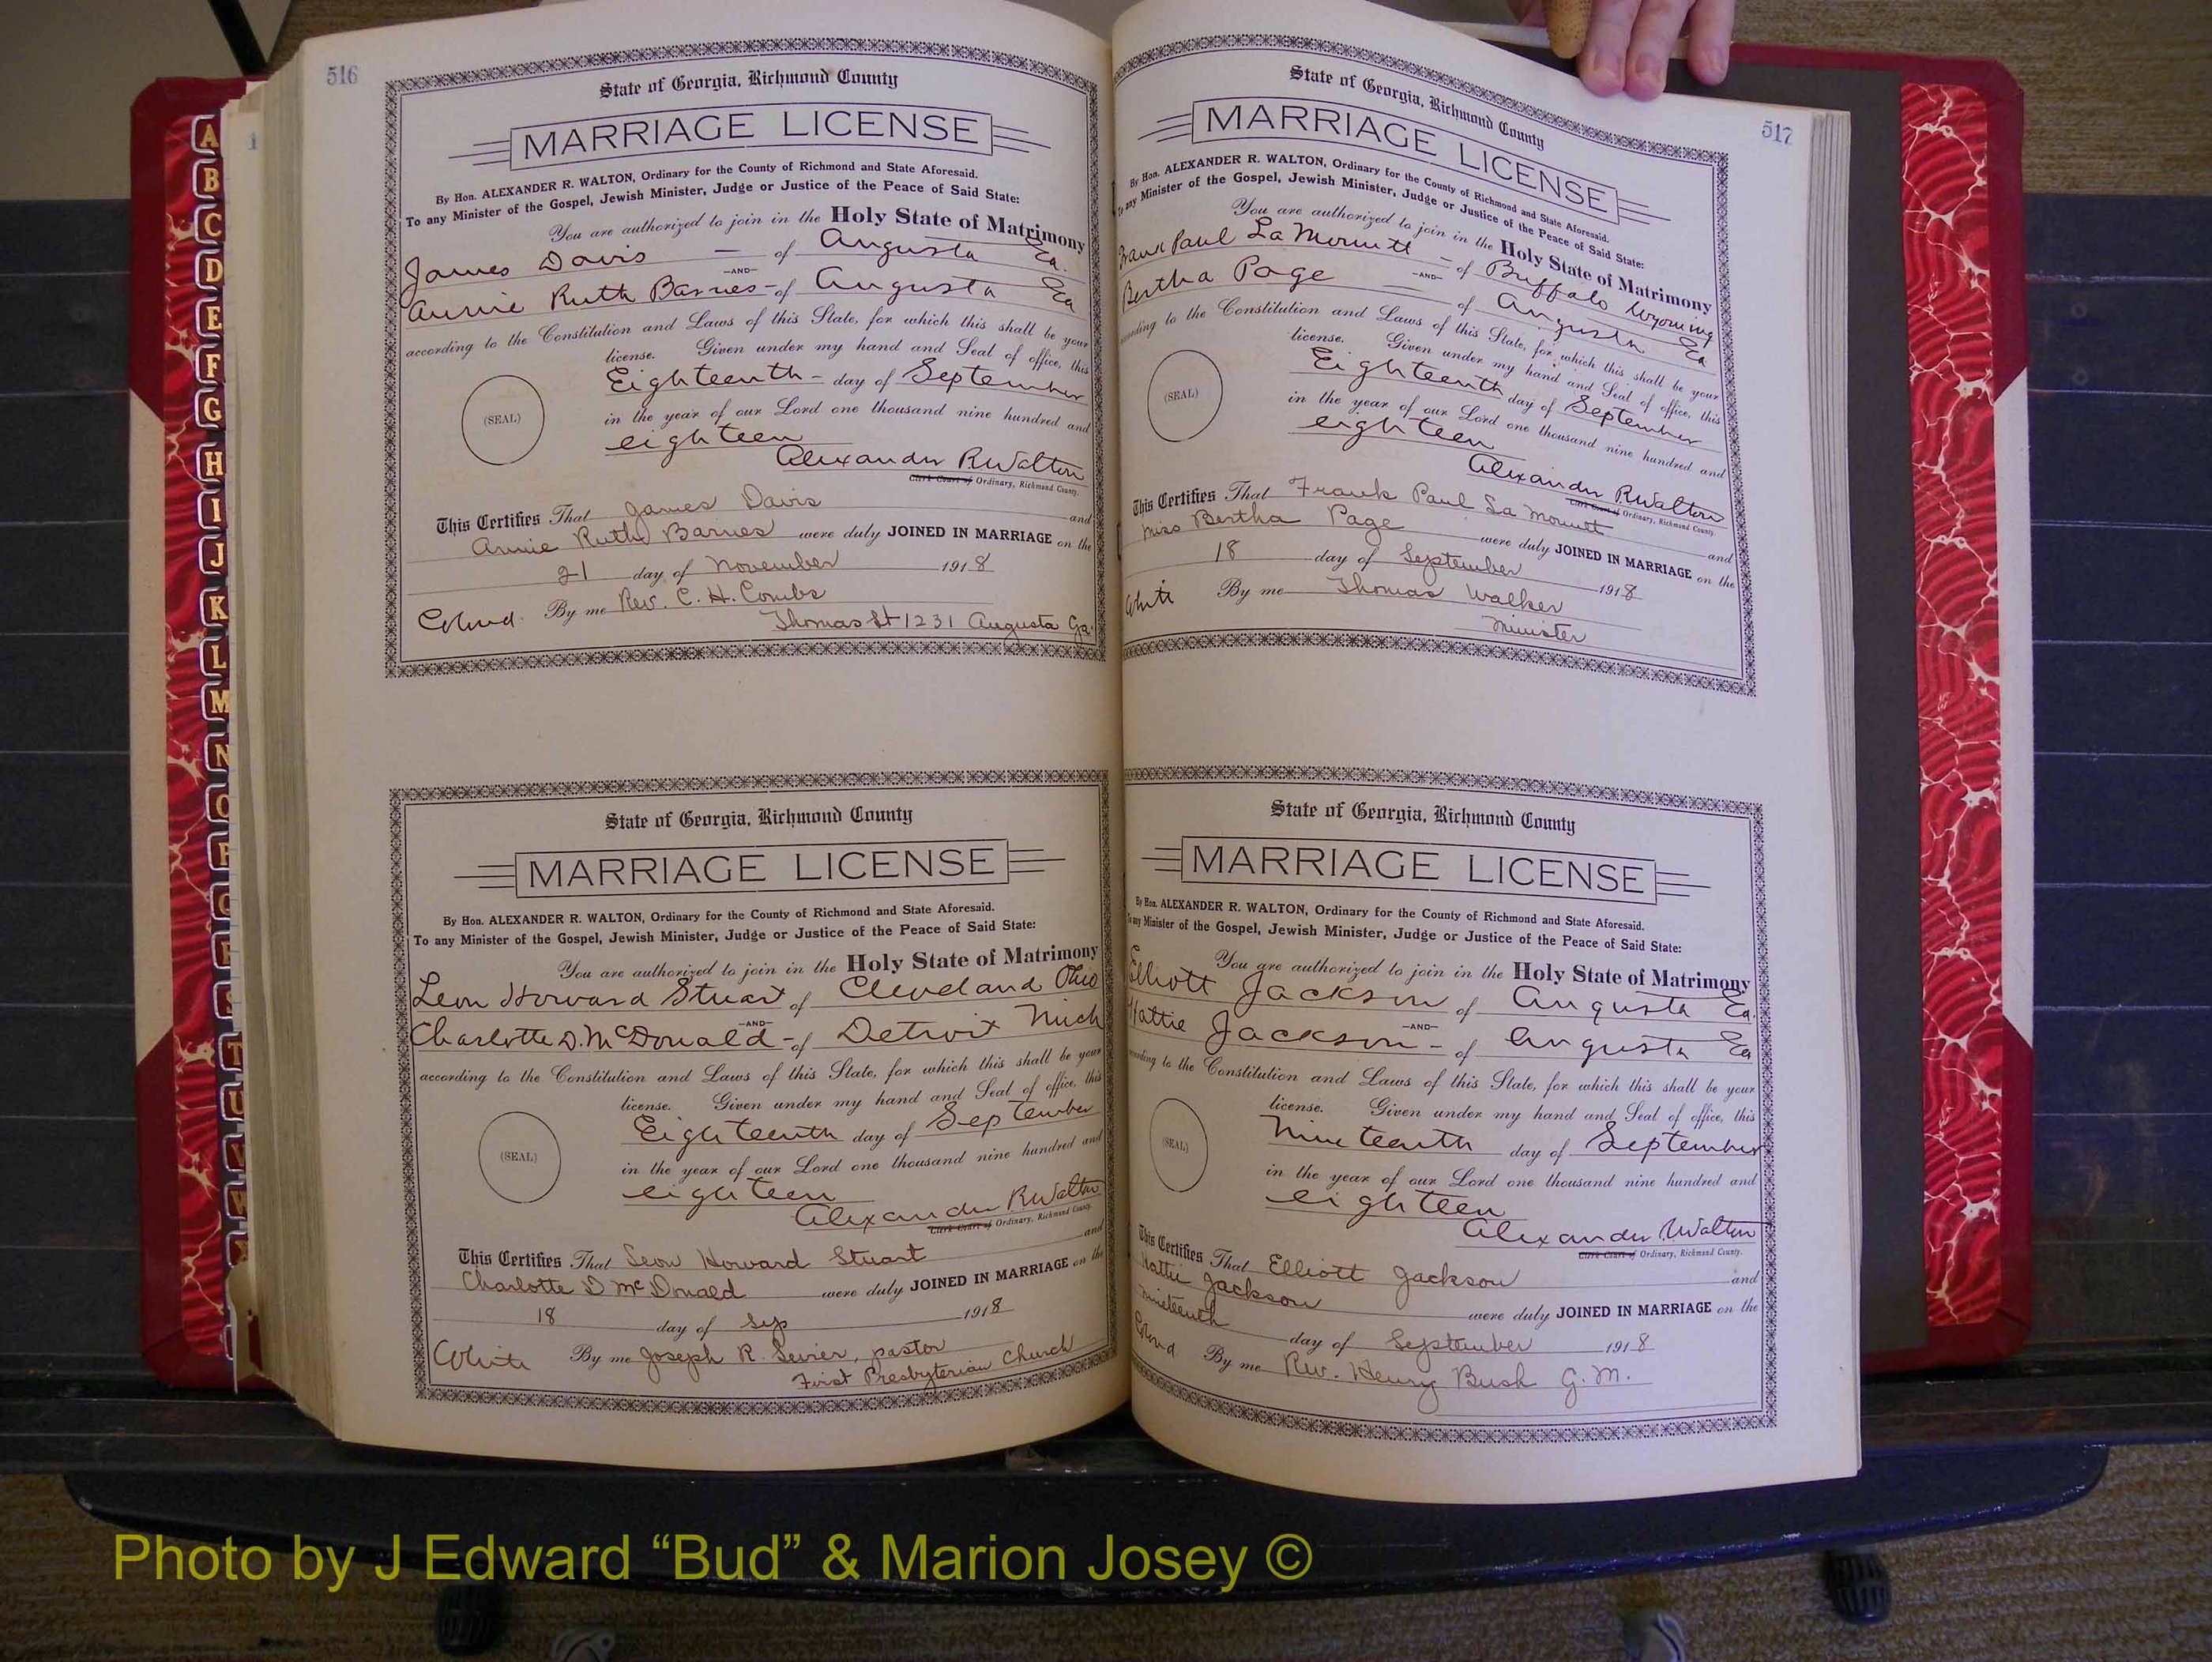 516
State of Georgia, Richmond County
MARRIAGE LICENSE
By Hon. ALEXANDER R. WALTON, Ordinary for the County of Richmond and State Aforesaid.
To any Minister of the Gospel, Jewish Minister, Judge or Justice of the Peace of Said State:
You are authorized to join in the Holy State of Matrimony
James Davis — of Augusta Ga.
—AND—
Annie Ruth Barnes - of Augusta Ga
according to the Constitution and Laws of this State, for which this shall be your
license. Given under my hand and Seal of office, this
Eighteenth - day of September
(SEAL)
in the year of our Lord one thousand nine hundred and
eighteen
Alexander R Walton
Clerk Court of Ordinary, Richmond County.
This Certifies That James Davis and
Annie Ruth Barnes were duly JOINED IN MARRIAGE on the
21 day of November 1918
Colored. By me Rev. C. H. Combs
Thomas St 1231 Augusta Ga.
State of Georgia, Richmond County
MARRIAGE LICENSE
By Hon. ALEXANDER R. WALTON, Ordinary for the County of Richmond and State Aforesaid.
To any Minister of the Gospel, Jewish Minister, Judge or Justice of the Peace of Said State:
You are authorized to join in the Holy State of Matrimony
Leon Howard Stuart of Cleveland Ohio
—AND—
Charlotte D. McDonald - of Detroit Mich
according to the Constitution and Laws of this State, for which this shall be your
license. Given under my hand and Seal of office, this
Eighteenth day of September
(SEAL)
in the year of our Lord one thousand nine hundred and
eighteen
Alexander R Walton
Clerk Court of Ordinary, Richmond County.
This Certifies That Leon Howard Stuart and
Charlotte D McDonald were duly JOINED IN MARRIAGE on the
18 day of Sep 1918
White By me Joseph R. Sevier, pastor
First Presbyterian Church
517
State of Georgia, Richmond County
MARRIAGE LICENSE
By Hon. ALEXANDER R. WALTON, Ordinary for the County of Richmond and State Aforesaid.
To any Minister of the Gospel, Jewish Minister, Judge or Justice of the Peace of Said State:
You are authorized to join in the Holy State of Matrimony
Frank Paul - of Buffalo Wyoming
—AND—
Bertha Page — of Augusta Ga
according to the Constitution and Laws of this State, for which this shall be your
license. Given under my hand and Seal of office, this
Eighteenth day of September
(SEAL)
in the year of our Lord one thousand nine hundred and
eighteen
Alexander R Walton
Clerk Court of Ordinary, Richmond County.
This Certifies That Frank Paul and
Miss Bertha Page were duly JOINED IN MARRIAGE on the
18 day of September 1918
White By me Thomas Walker
Minister
State of Georgia, Richmond County
MARRIAGE LICENSE
By Hon. ALEXANDER R. WALTON, Ordinary for the County of Richmond and State Aforesaid.
To any Minister of the Gospel, Jewish Minister, Judge or Justice of the Peace of Said State:
You are authorized to join in the Holy State of Matrimony
Elliott Jackson of Augusta Ga.
—AND—
Hattie Jackson - of Augusta Ga
according to the Constitution and Laws of this State, for which this shall be your
license. Given under my hand and Seal of office, this
Nineteenth day of September
(SEAL)
in the year of our Lord one thousand nine hundred and
eighteen
Alexander R Walton
Clerk Court of Ordinary, Richmond County.
This Certifies That Elliott Jackson and
Hattie Jackson were duly JOINED IN MARRIAGE on the
nineteenth day of September 1918
Colored By me Rev. Henry Bush G.M.
A
B
C
D
E
F
G
H
I
J
K
L
M
N
O
P
Q
R
S
T
U
V
W
Photo by J Edward “Bud” & Marion Josey ©